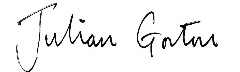 Julian Gorton